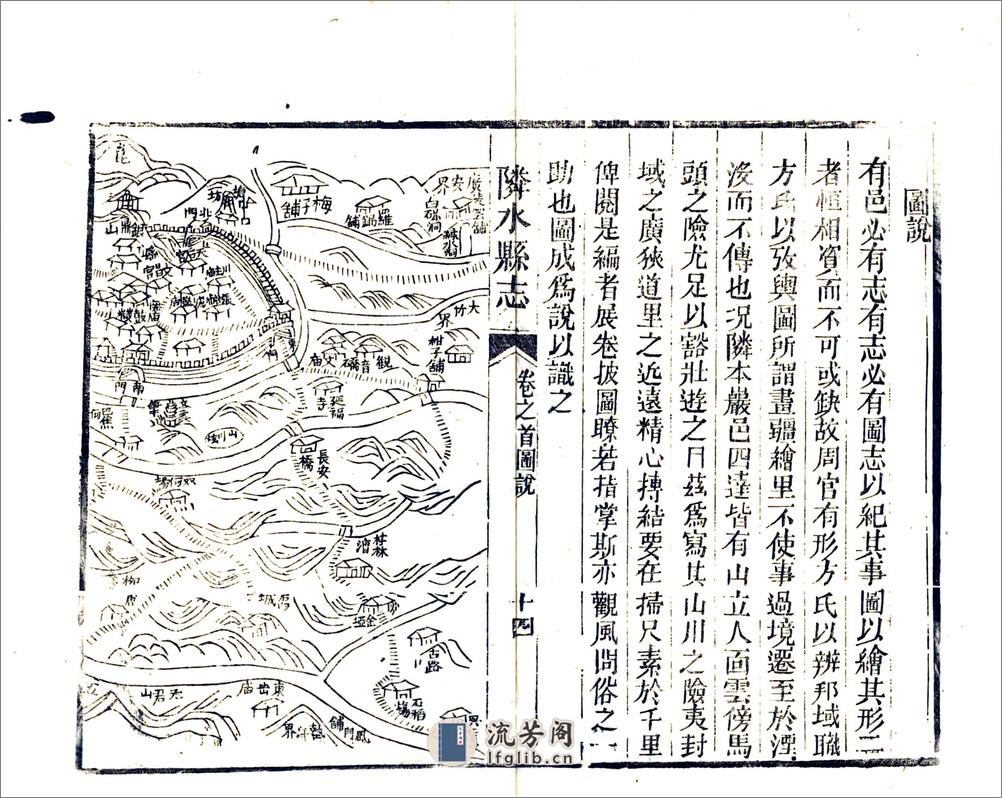 圖說
有邑必有志有志必有圖志以紀其事圖以繪其形二
者恒相資而不可或缺故周官有形方氏以辨邦域職
方氏以攷輿圖所謂畫疆繪里不使事過境遷至於湮
沒而不傳也况隣本巖邑四達皆有山立人面雲傍馬
頭之險尤足以豁壯遊之目茲為寫其山川之險夷封
域之廣狹道里之近遠精心摶結要在掃尺素於千里
俾閱是編者展卷披圖瞭若指掌斯亦觀風問俗之一
助也圖成為說以識之
隣水縣志
卷之首圖說
十四
梅子舖
羅鍋舖
白磉洞
大竹界
柑子舖
觀音橋
火庙
延福寺
東門
北門
南門
文昌宮
山川坛
長安橋
桂林灣
舌路
石稻塲
東岳庙
老君山
鳳門舖
流芳阁
lfglib.cn